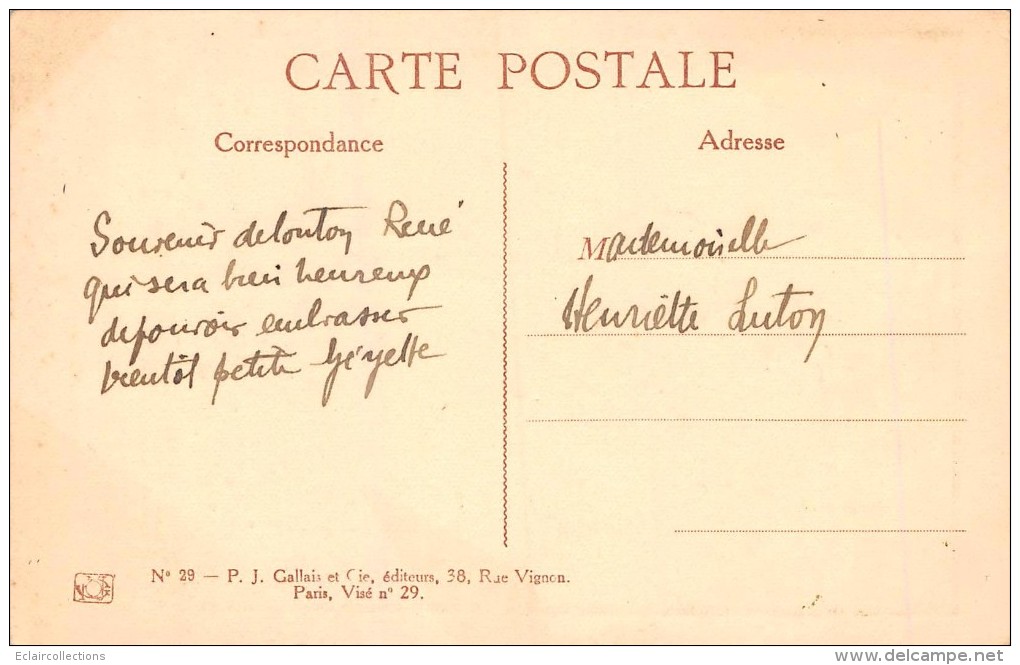 CARTE POSTALE
Correspondance
Adresse
Souvenir de tonton René
qui sera bien heureux
de pouvoir embrasser
bientôt petite
Mademoiselle
Henriette Luton
N° 29 — P. J. Gallais et Cie, éditeurs, 38, Rue Vignon.
Paris, Visé n° 29.
Eclaircollections
www.delcampe.net